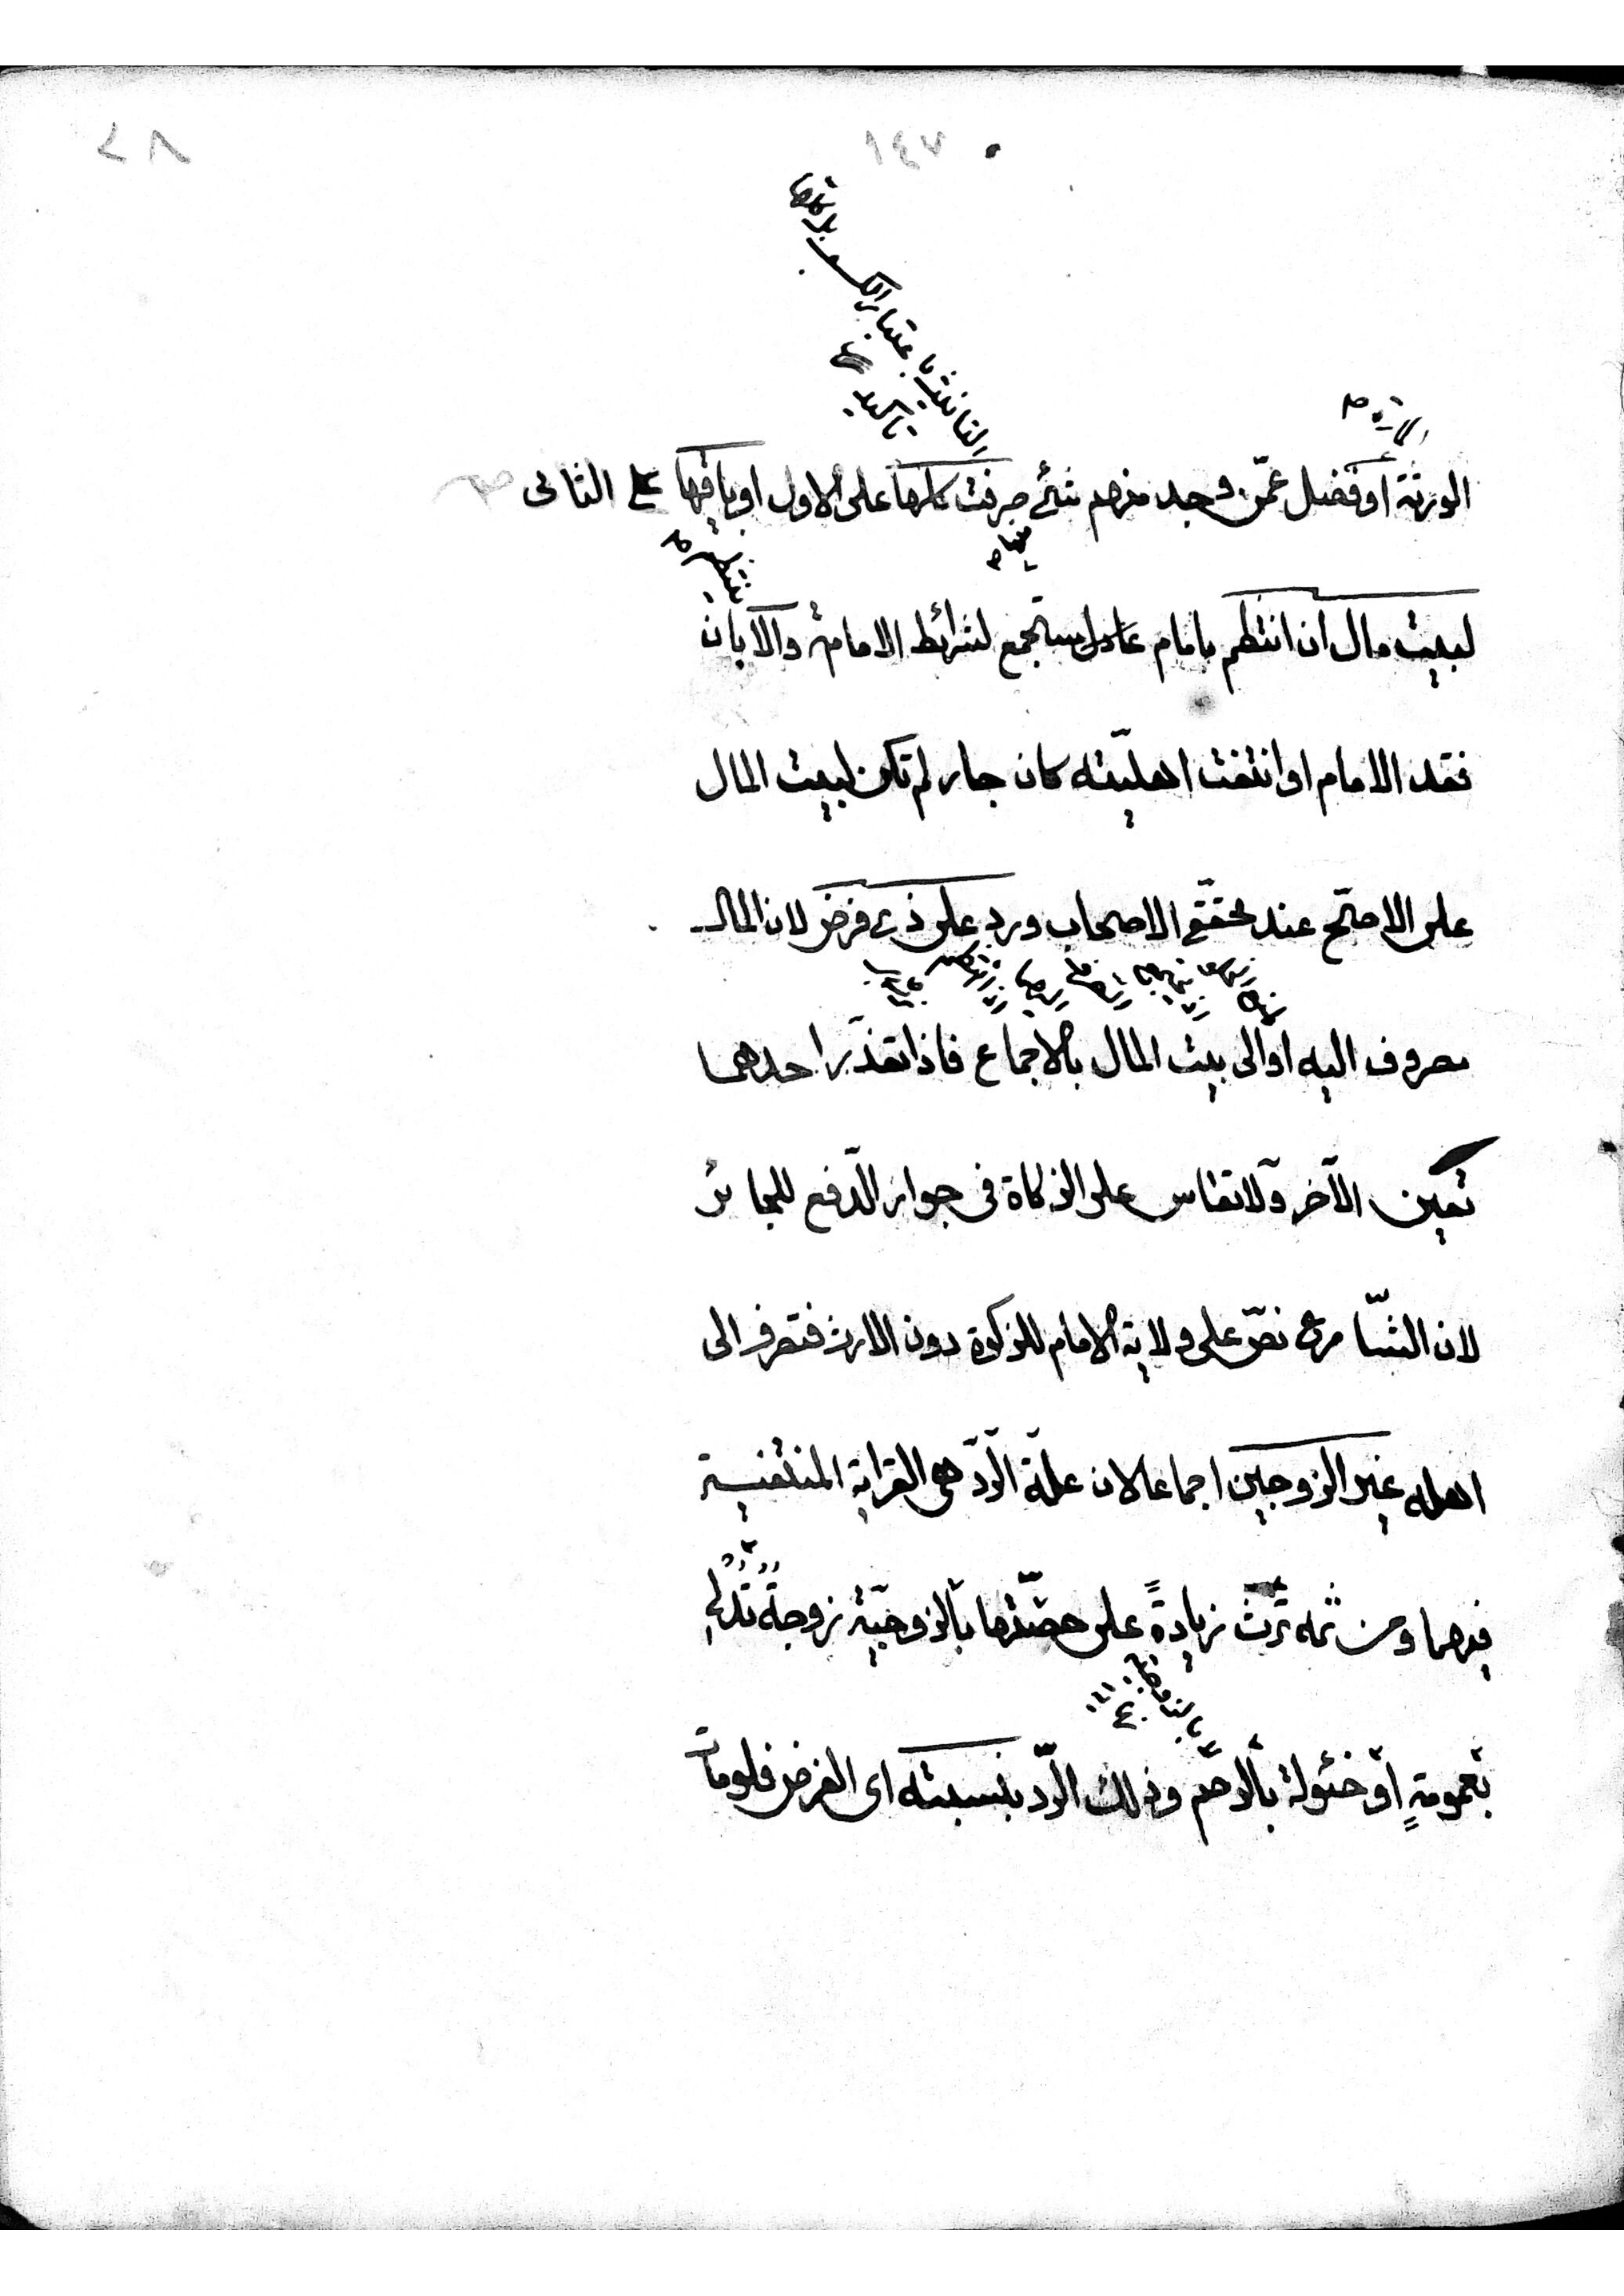 ١٤٧
٢٨
الورثة او فضل عمّن وجد منهم شئ صرفت كلها على الاول او باقيها على الثانى
لبيت مال ان انتظم بامام عادل مستجمع لشرائط الامامة والا بان
فقد الامام او انتفت اهليّته كان جار لم تكن لبيت المال
على الاصحّ عند محقّقى الاصحاب ورد على ذى فرض لان المال
مصروف اليه او الى بيت المال بالاجماع فاذا تعذّر احدهما
تعين الآخر ولا تقاس على الزكاة فى جواز الدّفع للجائر
لان الشّارع نصّ على ولاية الامام للزكوة دون الارث فتصرف الى
اهله غير الزوجين اجماعا لان علّة الرّدّ هى القرابة المنتفية
فيهما ومن ثمه ترث زيادةً على حصّتها بالزوجيّة زوجة تدلى
بعمومةٍ او خئولة بالرحم وذلك الرّد بنسبته اى الفرض فلو مات